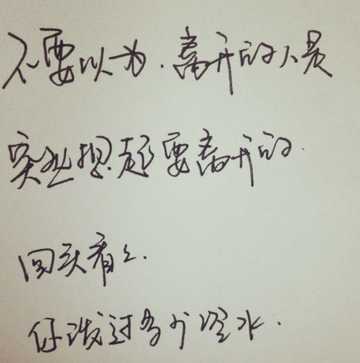 不要以为，离开的人是
突然想起要离开的.
回头看看.
你泼过多少冷水.